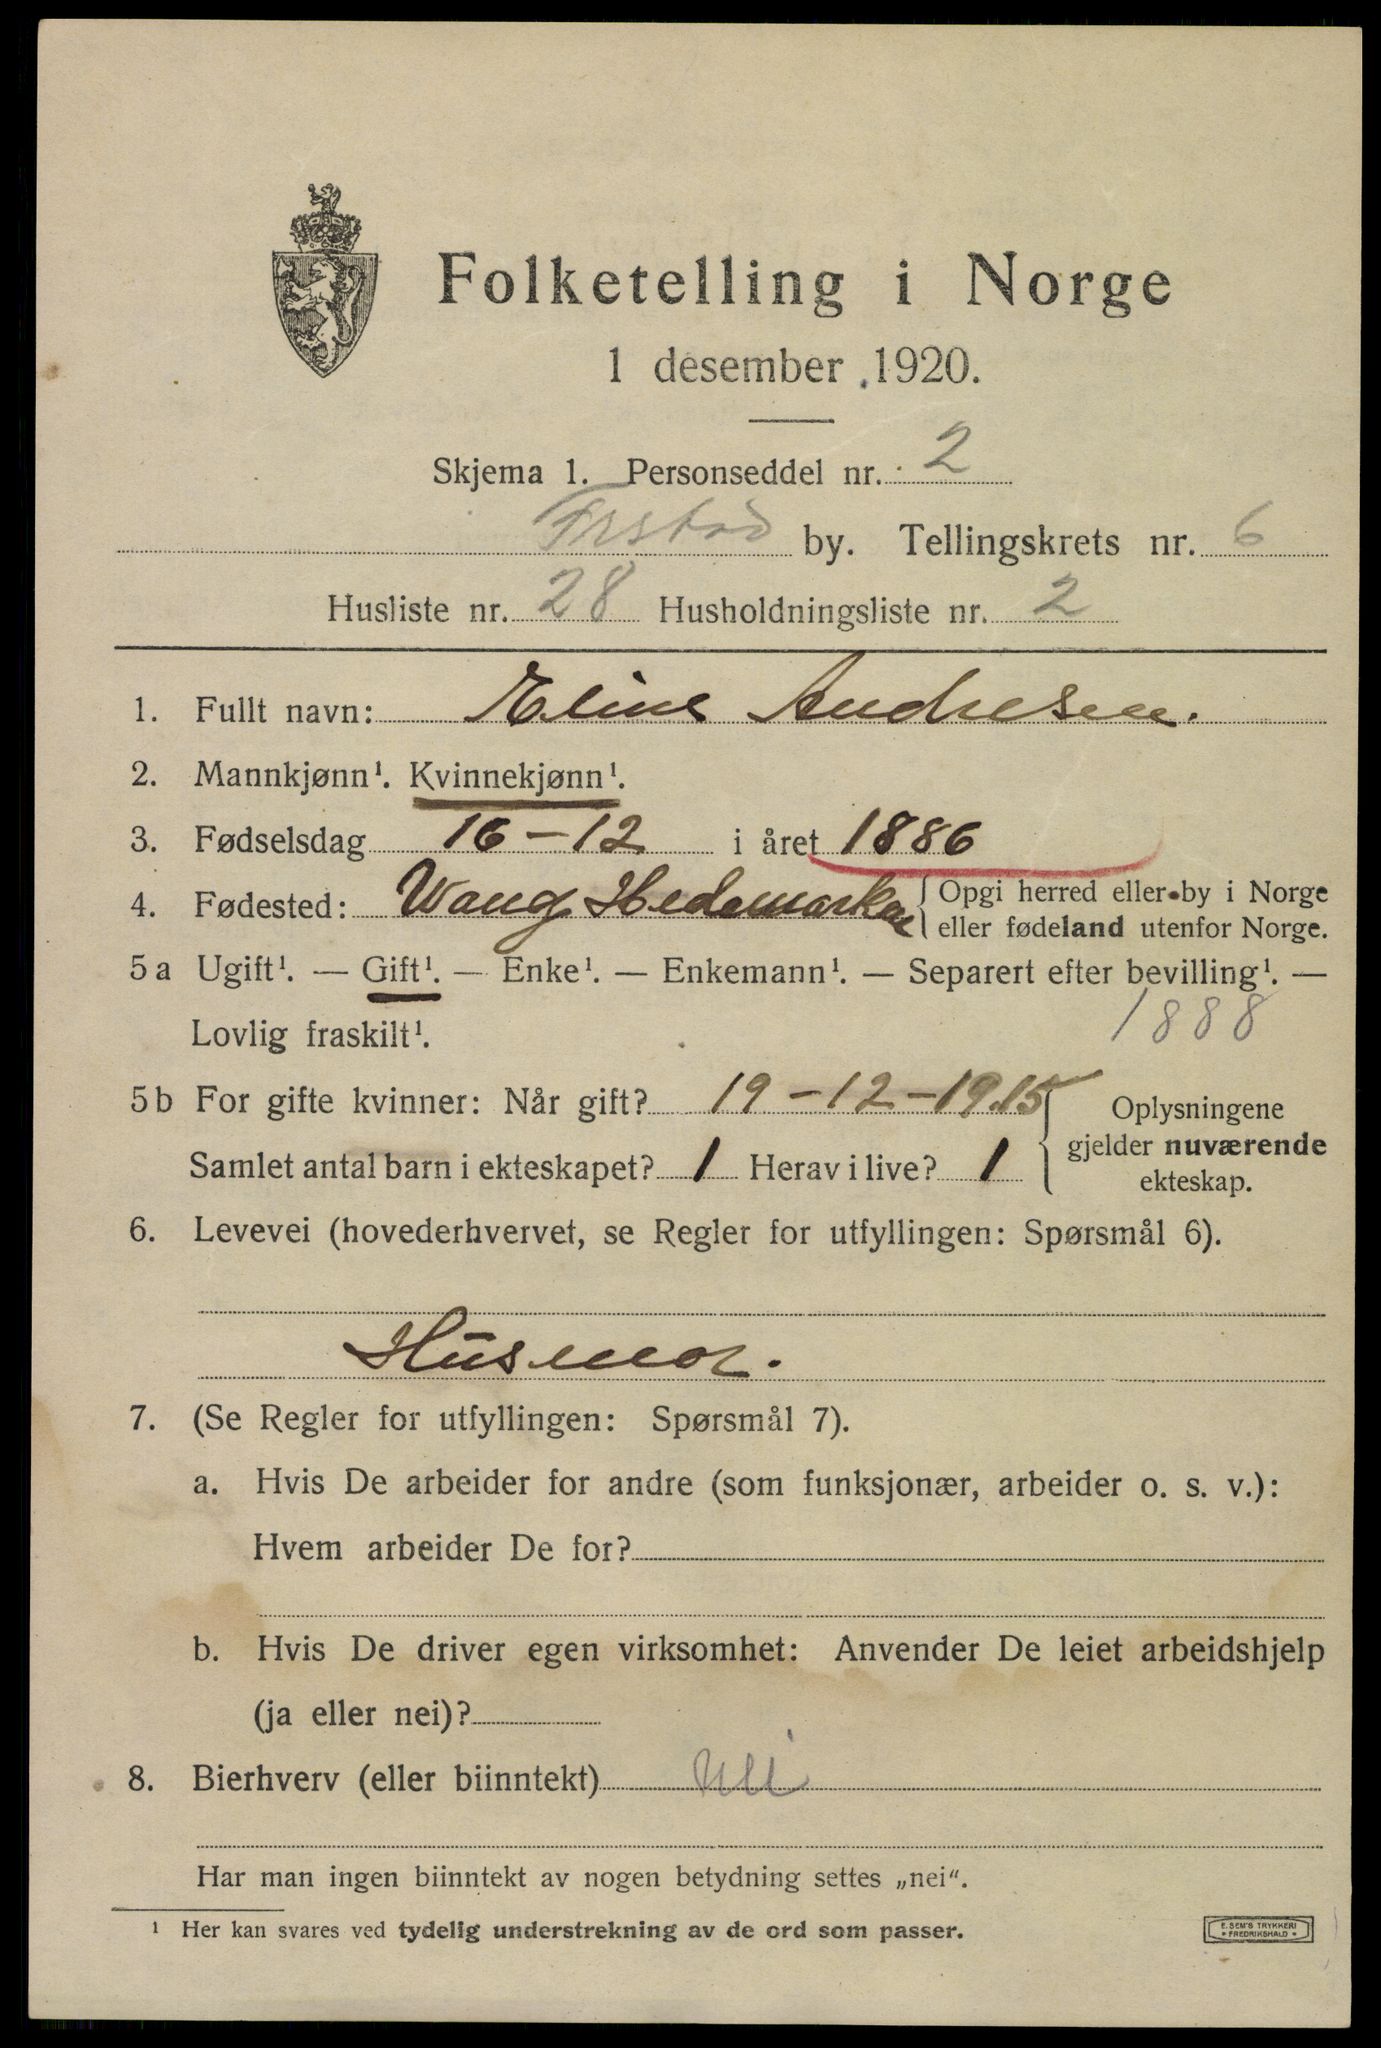 Folketelling i Norge
1 desember 1920.
Skjema 1. Personseddel nr. 2
Frstad by. Tellingskrets nr. 6
Husliste nr. 28 Husholdningsliste nr. 2
1. Fullt navn: Eline Andresen.
2. Mannkjønn¹. Kvinnekjønn¹.
3. Fødselsdag 16-12 i året 1886
4. Fødested: Wang Hedemarken { Opgi herred eller by i Norge
eller fødeland utenfor Norge.
5a Ugift¹. — Gift¹. — Enke¹. — Enkemann¹. — Separert efter bevilling¹. —
Lovlig fraskilt¹. 1888
5b For gifte kvinner: Når gift? 19-12-1915
Samlet antal barn i ekteskapet? 1 Herav i live? 1
{ Oplysningene
gjelder nuværende
ekteskap.
6. Levevei (hovederhvervet, se Regler for utfyllingen: Spørsmål 6).
Husmor.
7. (Se Regler for utfyllingen: Spørsmål 7).
a. Hvis De arbeider for andre (som funksjonær, arbeider o. s. v.):
Hvem arbeider De for?
b. Hvis De driver egen virksomhet: Anvender De leiet arbeidshjelp
(ja eller nei)?
8. Bierhverv (eller biinntekt) nei
Har man ingen biinntekt av nogen betydning settes „nei“.
¹ Her kan svares ved tydelig understrekning av de ord som passer.
E. SEM'S TRYKKERI
• FREDRIKSHALD •